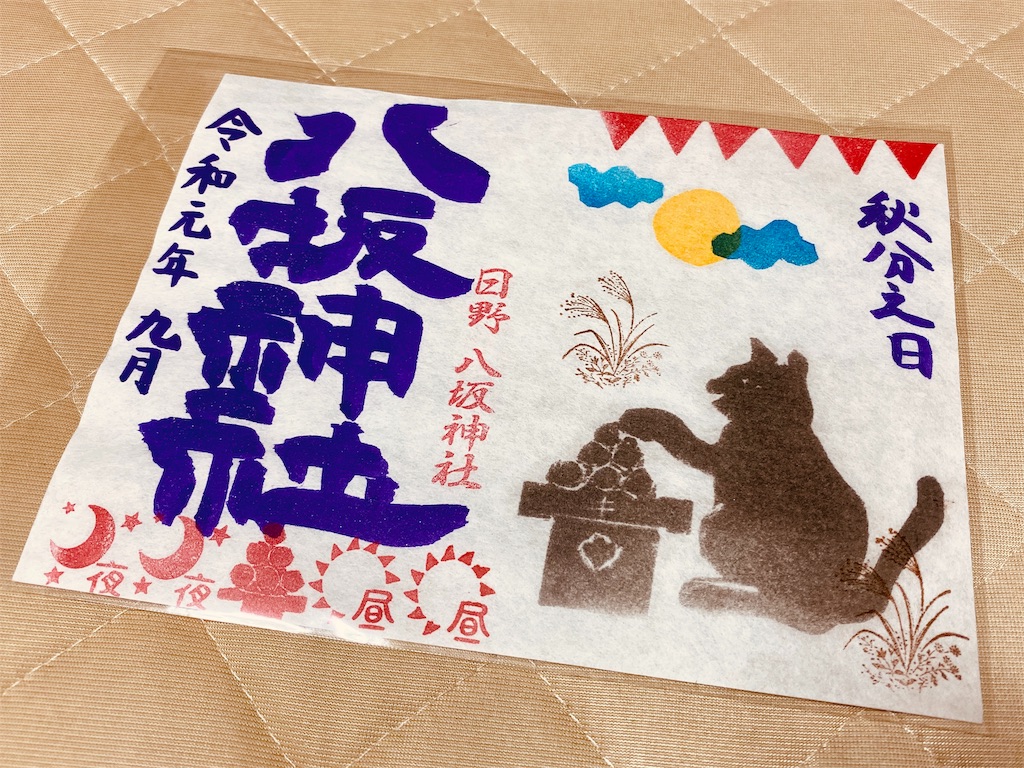 秋分之日
日野 八坂神社
八坂神社
令和元年 九月
昼
昼
夜
夜